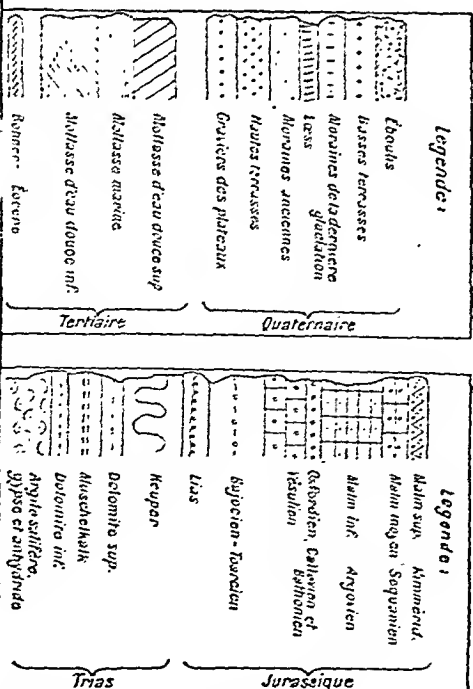 Légende:
Éboulis
Basses terrasses
Moraines de la dernière
glaciation
Lœss
Moraines anciennes
Hautes terrasses
Graviers des plateaux
Quaternaire
Mollasse d'eau douce sup.
Mollasse marine
Mollasse d'eau douce inf.
Éocène
Tertiaire
Légende:
Malm sup. Kimmérid.
Malm moyen Séquanien
Malm inf. Argovien
Oxfordien, Callovien et
Bathonien
Vésulien
Bajocien-Toarcien
Lias
Jurassique
Keuper
Dolomite sup.
Muschelkalk
Dolomite inf.
Argile salifère,
gypse et anhydride
Trias